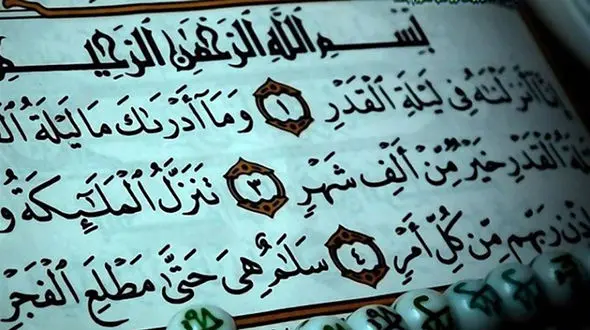 بِسْمِ اللَّهِ الرَّحْمَٰنِ الرَّحِيمِ
إِنَّا أَنزَلْنَٰهُ فِي لَيْلَةِ الْقَدْرِ ١ وَمَا أَدْرَىٰكَ مَا لَيْلَةُ
الْقَدْرِ خَيْرٌ مِّنْ أَلْفِ شَهْرٍ ٣ تَنَزَّلُ الْمَلَٰٓئِكَةُ
رَبِّهِم مِّن كُلِّ أَمْرٍ ٤ سَلَٰمٌ هِيَ حَتَّىٰ مَطْلَعِ الْفَجْرِ